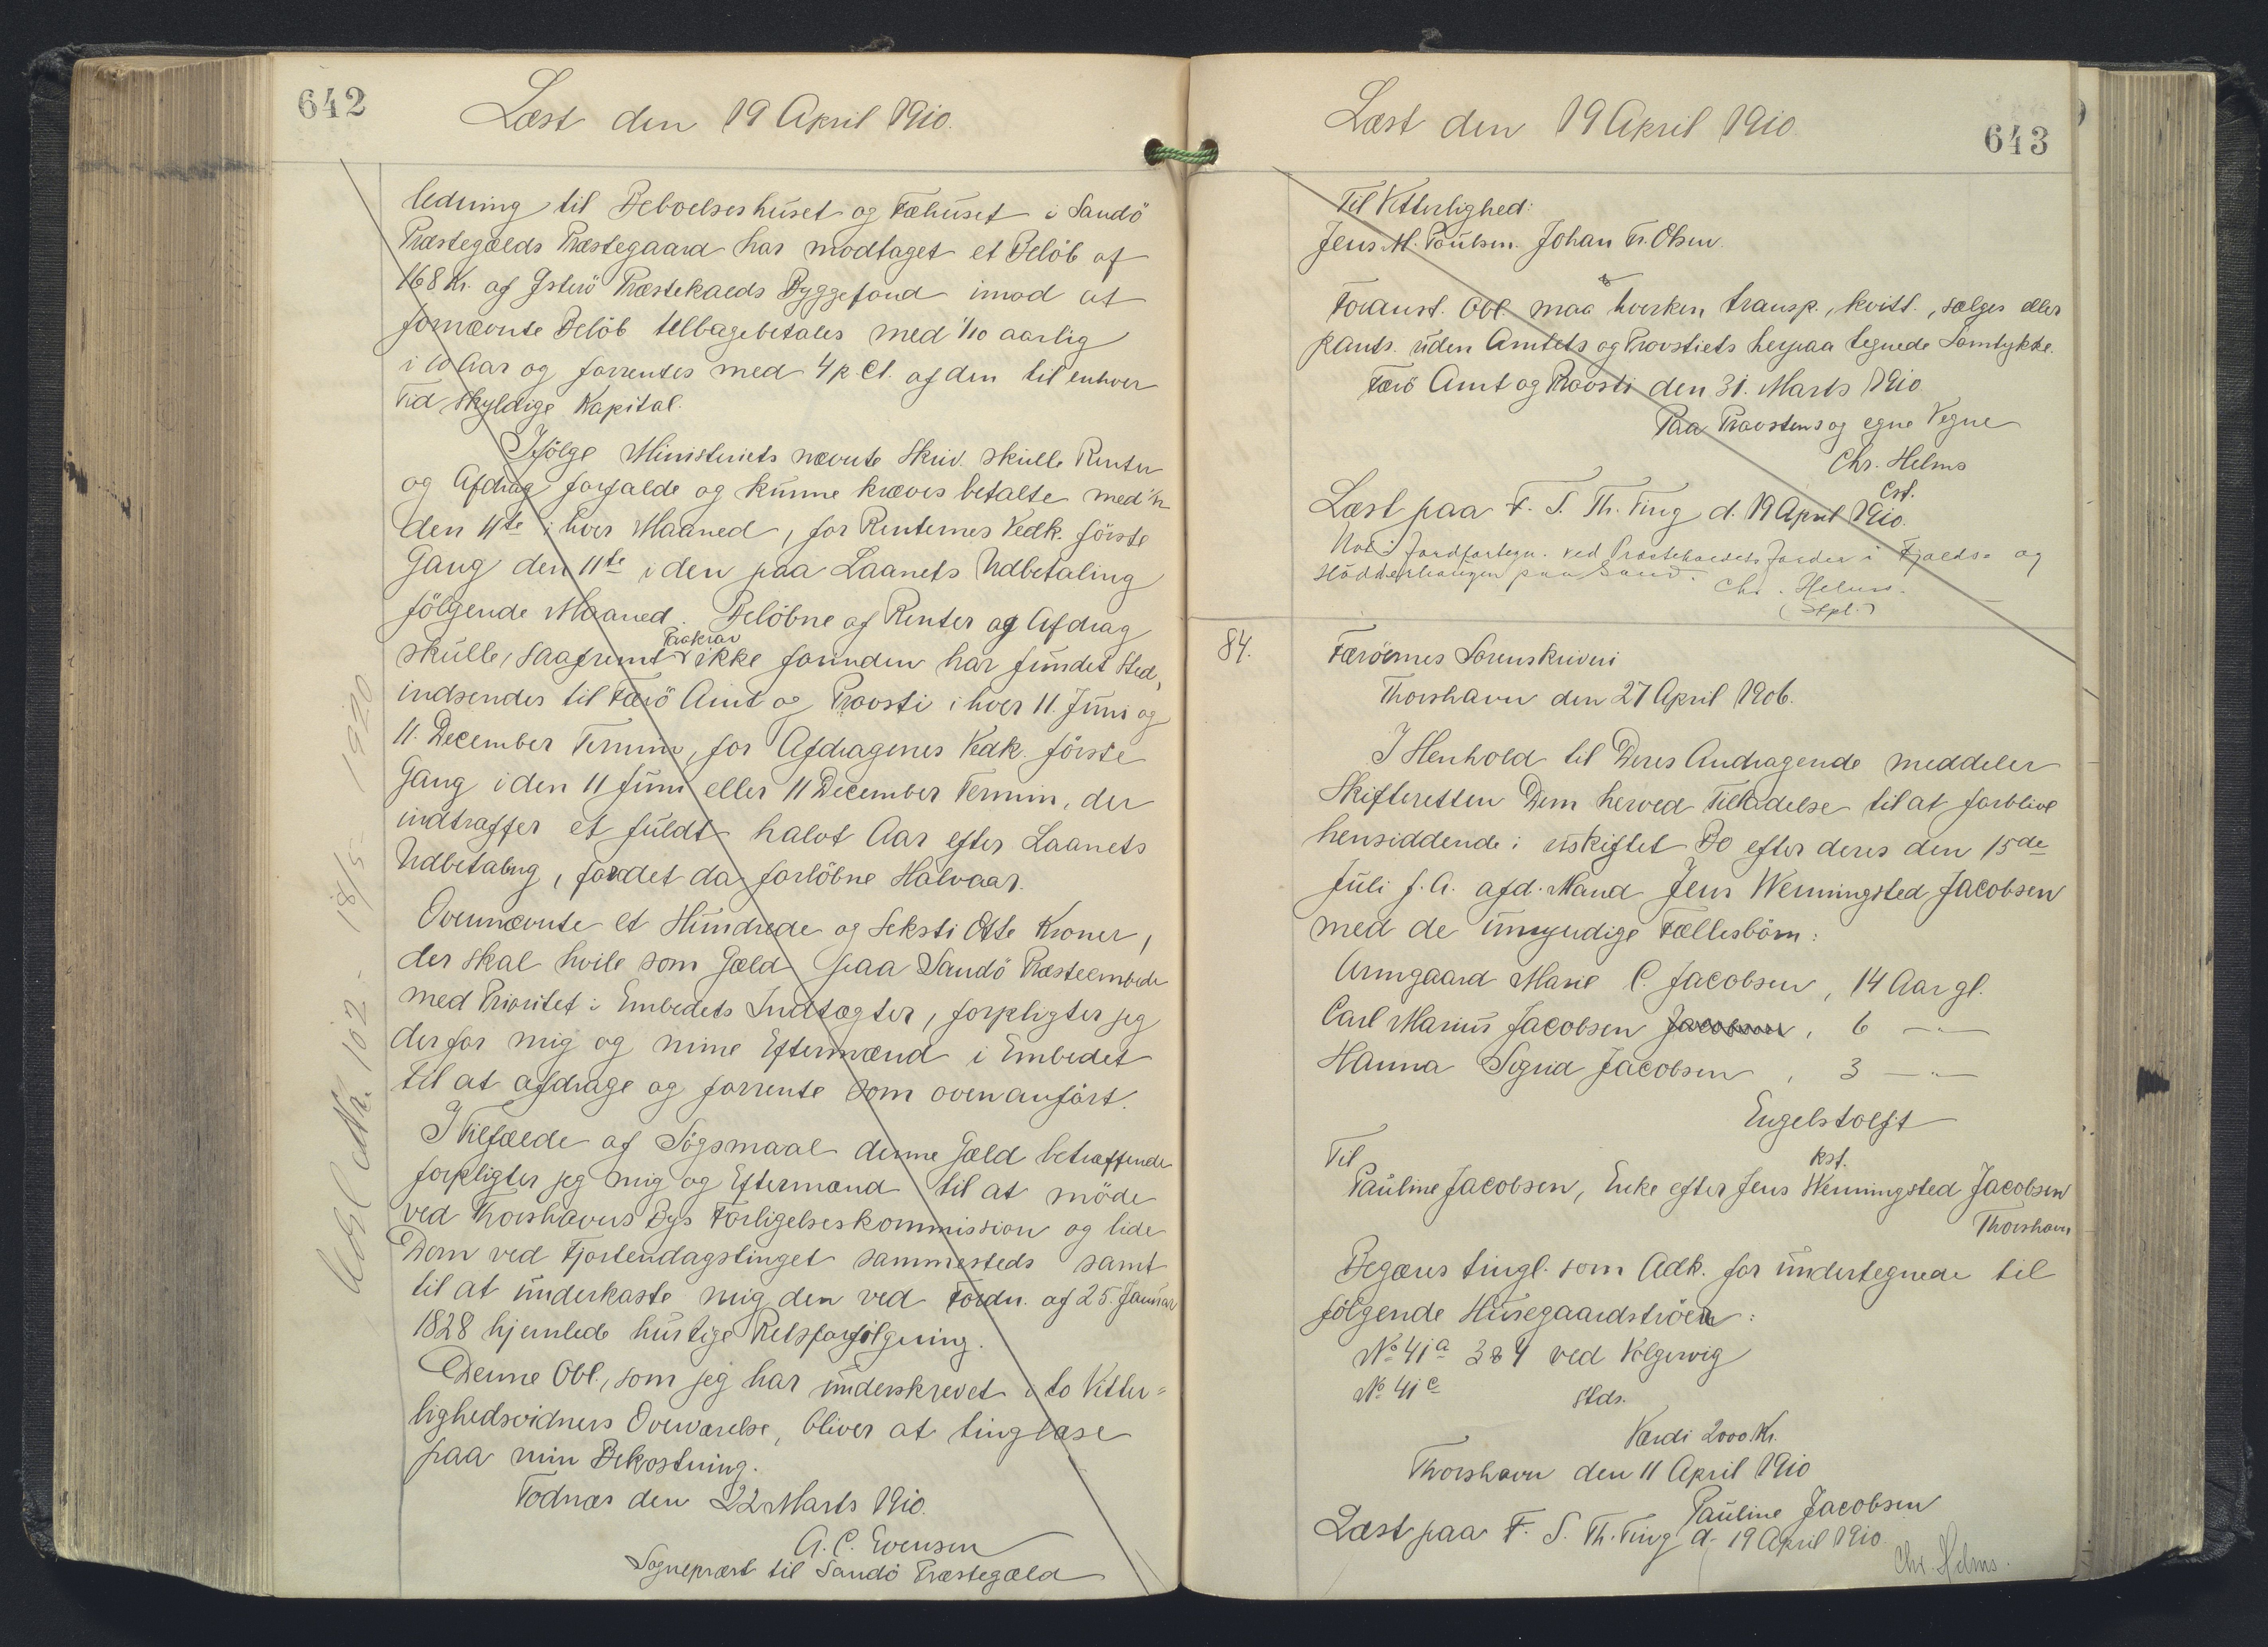 642
Læst den 19 April 1910.
ledning til Beboelseshuset og Fæhuset i Sandö
Præstegælds Præstegaard har modtaget et Belöb af
168 Kr. af Österö Præstekalds Byggefond imod at
fornævnte Belöb tilbagebetales med 1/10 aarlig
i 10 Aar og forrentes med 4 p. Ct. af den til enhver
Tid skyldige Kapital.
Ifölge Ministeriets nævnte Skriv. skulle Renter
og Afdrag forfalde og kunne kræves betalte med 1/12
den 11te i hver Maaned, for Renternes Vedk. förste
Gang den 11te i den paa Laanets Udbetaling
fölgende Maaned. Belöbne af Renter og Afdrag
Frakrav
skulle, saafremt ikke forinden har fundet Sted,
indsendes til Færö Amt og Provsti i hver 11. Juni og
11. December Termin, for Afdragenes Vedk. förste
Gang i den 11 Juni eller 11 December Termin, der
indtræffer et fuldt halvt Aar efter Laanets
Udbetaling, for det da forlöbne Halvaar.
Ovennævnte et Hundrede og Seksti Otte Kroner,
der skal hvile som Gæld paa Sandö Præsteembede
med Prioritet i Embedets Indtægter, forpligter jeg
derfor mig og mine Eftermænd i Embedet
til at afdrage og forrente som ovenanfört.
I Tilfælde af Sögsmaal denne Gæld betræffende
forpligter jeg mig og Eftermænd til at möde
ved Thorshavns Bys Forligelseskommission og lide
Dom ved Fjortendagstinget sammesteds samt
til at underkaste mig den ved Fordn. af 25. Januar
1828 hjemlede hurtige Retsforfölgning.
Denne Obl., som jeg har underskrevet i to Vitter=
lighedsvidners Overværelse, bliver at tinglæse
paa min Bekostning.
Todnæs den 22 Marts 1910.
A. C. Evensen
Sognepræst til Sandö Præstegæld
Nr. 102 - 18/5 - 1920
Læst den 19 April 1910.
643
Til Vitterlighed:
Jens M. Poulsen. Johan Fr. Olsen.
Foranst. Obl. maa hverken transp., kvitt., sælges eller
pants. uden Amtets og Provstiets herpaa tegnede Samtykke.
Færö Amt og Provsti den 31. Marts 1910
Paa Provstens og egne Vegne
Chr. Helms
Cst.
Læst paa F. S. Th. Ting d. 19 April 1910.
Not. i Jordfortegn. ved Præstekaldets Jorder i og
paa Sand. Chr. Helms.
84.
Færöernes Sorenskriveri
Thorshavn den 27 April 1906.
I Henhold til Deres Andragende meddeler
Skifteretten Dem herved Tilladelse til at forblive
hensiddende i uskiftet Bo efter deres den 15de
Juli f. A. afd. Mand Jens Wenningsted Jacobsen
med de umyndige Fællesbörn:
Armgaard Marie C. Jacobsen, 14 Aar gl.
Carl Marius Jacobsen Jacobsen, 6 — " —
Hanna Sigrid Jacobsen, 3 — " —
Engelstolft
kst.
Til
Pauline Jacobsen, Enke efter Jens Wenningsted Jacobsen
Thorshavn
Begæres tingl. som Adk. for undertegnede til
fölgende Husegaardströer:
No 41a 3 & 4 ved
No 41c stds.
Værdi 2000 Kr.
Thorshavn den 11 April 1910
Pauline Jacobsen
Læst paa F. S. Th. Ting d. 19 April 1910.
Chr. Helms.